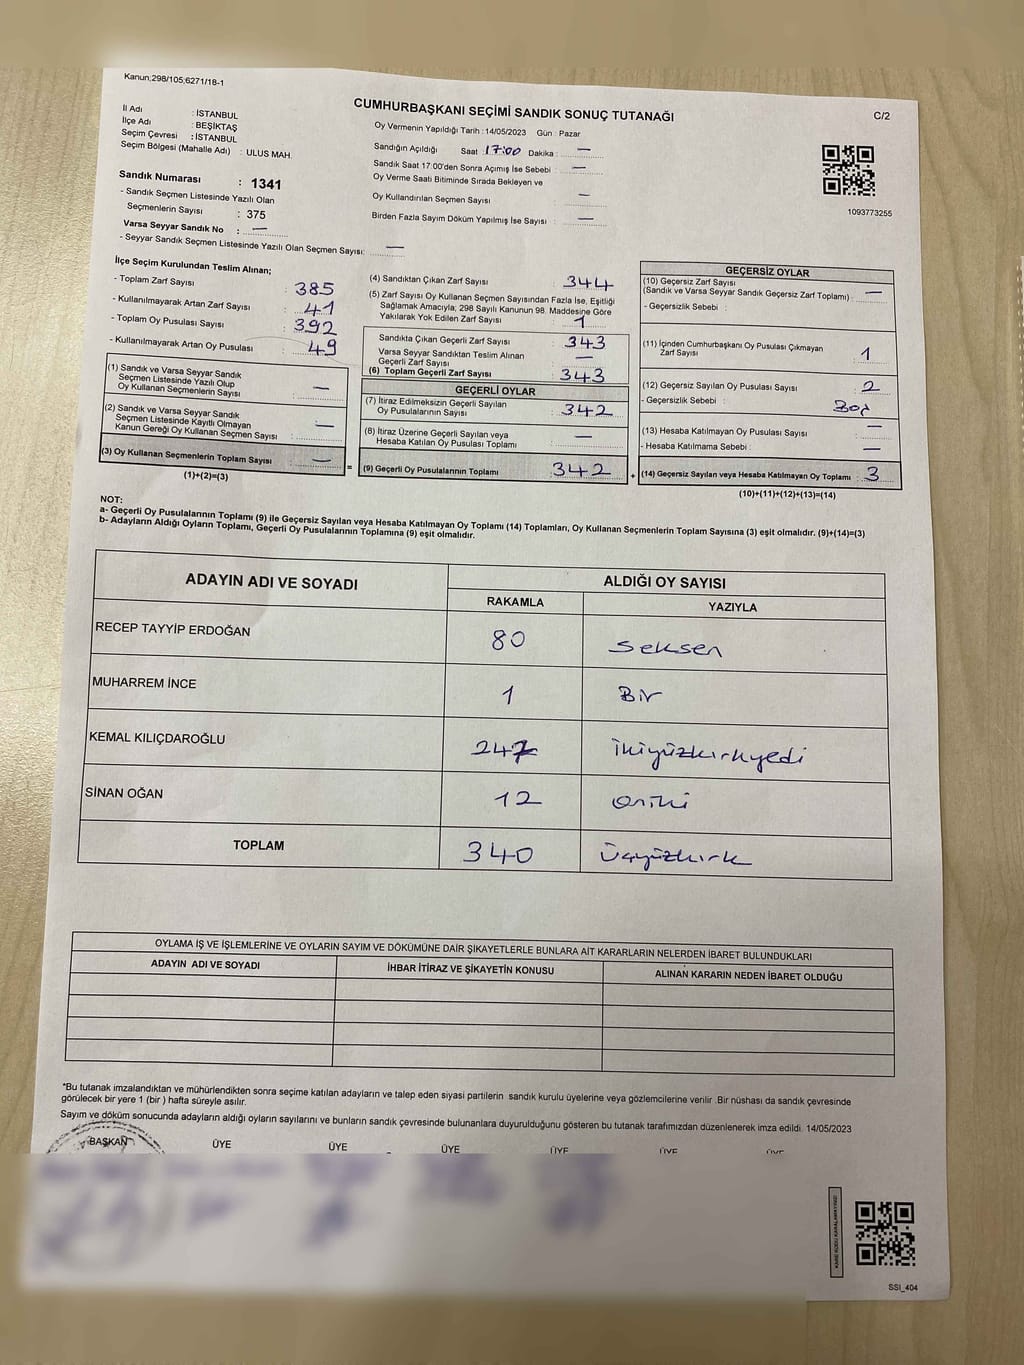 Kanun;298/105;6271/18-1
CUMHURBAŞKANI SEÇİMİ SANDIK SONUÇ TUTANAĞI
C/2
İl Adı : İSTANBUL
İlçe Adı : BEŞİKTAŞ
Seçim Çevresi : İSTANBUL
Seçim Bölgesi (Mahalle Adı) : ULUS MAH.
Oy Vermenin Yapıldığı Tarih : 14/05/2023 Gün : Pazar
Sandığın Açıldığı Saat 17:00 Dakika : —
Sandık Saat 17:00'den Sonra Açımış İse Sebebi : —
Oy Verme Saati Bitiminde Sırada Bekleyen ve
Oy Kullandırılan Seçmen Sayısı : —
Birden Fazla Sayım Döküm Yapılmış İse Sayısı : —
1093773255
Sandık Numarası : 1341
- Sandık Seçmen Listesinde Yazılı Olan
Seçmenlerin Sayısı : 375
Varsa Seyyar Sandık No : —
- Seyyar Sandık Seçmen Listesinde Yazılı Olan Seçmen Sayısı: —
İlçe Seçim Kurulundan Teslim Alınan;
- Toplam Zarf Sayısı : 385
- Kullanılmayarak Artan Zarf Sayısı : 41
- Toplam Oy Pusulası Sayısı : 392
- Kullanılmayarak Artan Oy Pusulası : 49
(1) Sandık ve Varsa Seyyar Sandık
Seçmen Listesinde Yazılı Olup
Oy Kullanan Seçmenlerin Sayısı : —
(2) Sandık ve Varsa Seyyar Sandık
Seçmen Listesinde Kayıtlı Olmayan
Kanun Gereği Oy Kullanan Seçmen Sayısı : —
(3) Oy Kullanan Seçmenlerin Toplam Sayısı : —
(1)+(2)=(3)
(4) Sandıktan Çıkan Zarf Sayısı : 344
(5) Zarf Sayısı Oy Kullanan Seçmen Sayısından Fazla İse, Eşitliği
Sağlamak Amacıyla; 298 Sayılı Kanunun 98. Maddesine Göre
Yakılarak Yok Edilen Zarf Sayısı : 1
Sandıkta Çıkan Geçerli Zarf Sayısı : 343
Varsa Seyyar Sandıktan Teslim Alınan
Geçerli Zarf Sayısı : —
(6) Toplam Geçerli Zarf Sayısı : 343
GEÇERLİ OYLAR
(7) İtiraz Edilmeksizin Geçerli Sayılan
Oy Pusulalarının Sayısı : 342
(8) İtiraz Üzerine Geçerli Sayılan veya
Hesaba Katılan Oy Pusulası Toplamı : —
= (9) Geçerli Oy Pusulalarının Toplamı : 342
GEÇERSİZ OYLAR
(10) Geçersiz Zarf Sayısı
(Sandık ve Varsa Seyyar Sandık Geçersiz Zarf Toplamı) : —
- Geçersizlik Sebebi :
(11) İçinden Cumhurbaşkanı Oy Pusulası Çıkmayan
Zarf Sayısı : 1
(12) Geçersiz Sayılan Oy Pusulası Sayısı : 2
- Geçersizlik Sebebi : Boş
(13) Hesaba Katılmayan Oy Pusulası Sayısı : —
- Hesaba Katılmama Sebebi : —
+ (14) Geçersiz Sayılan veya Hesaba Katılmayan Oy Toplamı : 3
(10)+(11)+(12)+(13)=(14)
NOT:
a- Geçerli Oy Pusulalarının Toplamı (9) ile Geçersiz Sayılan veya Hesaba Katılmayan Oy Toplamı (14) Toplamları, Oy Kullanan Seçmenlerin Toplam Sayısına (3) eşit olmalıdır. (9)+(14)=(3)
b- Adayların Aldığı Oyların Toplamı, Geçerli Oy Pusulalarının Toplamına (9) eşit olmalıdır.
ADAYIN ADI VE SOYADI ALDIĞI OY SAYISI
RAKAMLA YAZIYLA
RECEP TAYYİP ERDOĞAN 80 Seksen
MUHARREM İNCE 1 Bir
KEMAL KILIÇDAROĞLU 247 İkiyüzkırkyedi
SİNAN OĞAN 12 Oniki
TOPLAM 340 Üçyüzkırk
OYLAMA İŞ VE İŞLEMLERİNE VE OYLARIN SAYIM VE DÖKÜMÜNE DAİR ŞİKAYETLERLE BUNLARA AİT KARARLARIN NELERDEN İBARET BULUNDUKLARI
ADAYIN ADI VE SOYADI İHBAR İTİRAZ VE ŞİKAYETİN KONUSU ALINAN KARARIN NEDEN İBARET OLDUĞU
*Bu tutanak imzalandıktan ve mühürlendikten sonra seçime katılan adayların ve talep eden siyasi partilerin sandık kurulu üyelerine veya gözlemcilerine verilir .Bir nüshası da sandık çevresinde
görülecek bir yere 1 (bir ) hafta süreyle asılır.
Sayım ve döküm sonucunda adayların aldığı oyların sayılarını ve bunların sandık çevresinde bulunanlara duyurulduğunu gösteren bu tutanak tarafımızdan düzenlenerek imza edildi. 14/05/2023
BAŞKAN ÜYE ÜYE ÜYE ÜYE ÜYE ÜYE
KARE KODU KARALAMAYINIZ!
SSI_404